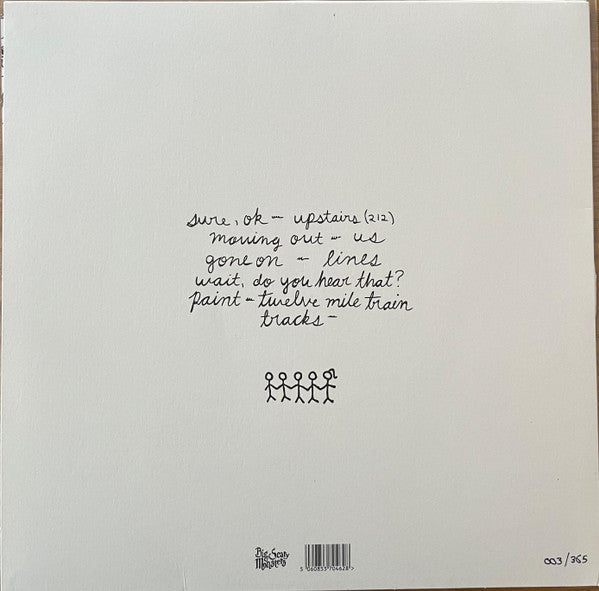 sure, ok - upstairs (212)
moving out - us
gone on - lines
wait, do you hear that?
paint - twelve mile train
tracks -
Big Scary
Monsters
5 060853 704628 >
003/365